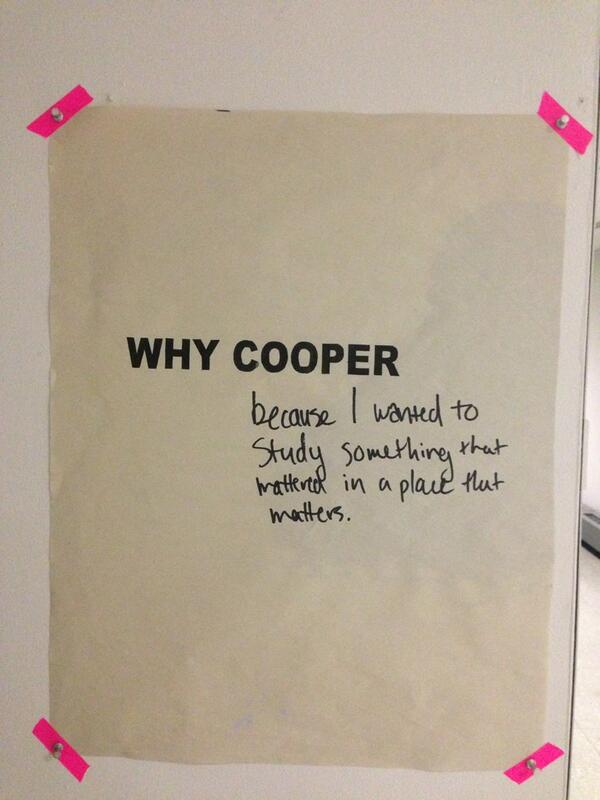 WHY COOPER
because I wanted to
Study something that
mattered in a place that
matters.